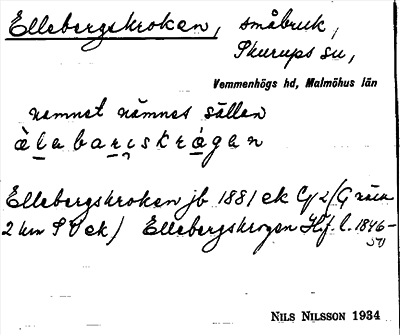 Ellebergskroken, småbruk,
Skurups sn,
Vemmenhögs hd, Malmöhus län
namnet nämnes sällan
àlabarıskrágan
Ellebergskroken jb 1881 ek Cy2 (G
2 km S V ek) Ellebergskrogen Hf. l. 1846-
50
NILS NILSSON 1934